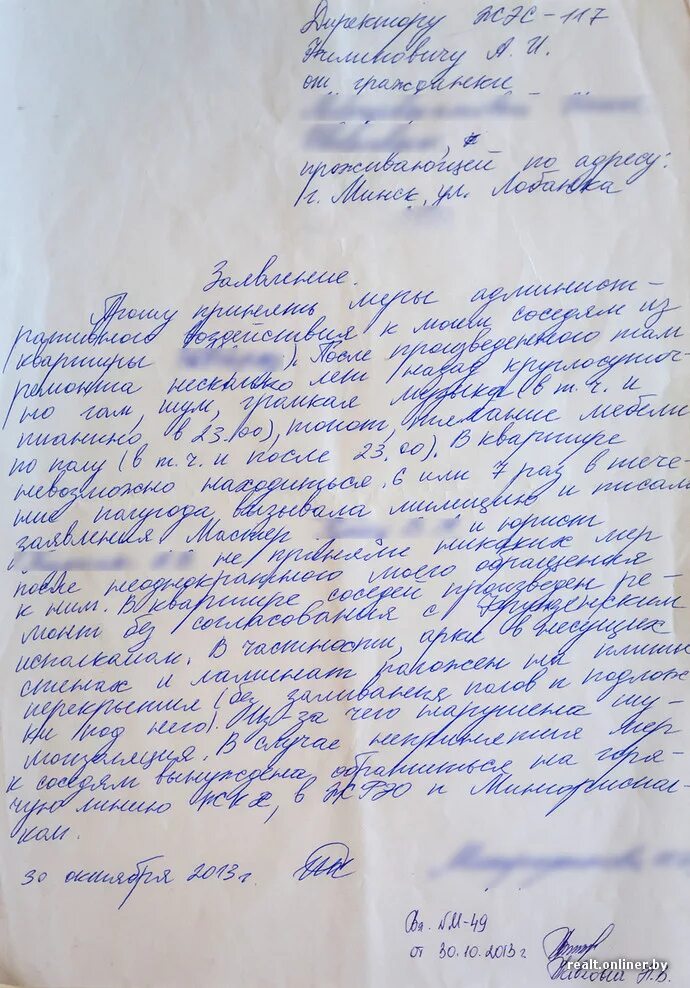 Директору ЖЭС-117
Филиповичу А. И.
от гражданки
проживающей по адресу:
г. Минск, ул. Лобанка
Заявление.
Прошу принять меры админист-
ративного воздействия к моим соседям из
квартиры ). После произведенного там
ремонта несколько лет назад круглосуточ-
но гам, шум, громкая музыка (в т.ч. и
пианино в 23.00), топот, пихание мебели
по полу (в т.ч. и после 23.00). В квартире
невозможно находиться. 6 или 7 раз в тече-
ние полугода вызывала милицию и писала
заявления Мастер и юрист
не приняли никаких мер
после неоднократного моего обращения
к ним. В квартире соседей произведен ре-
монт без согласования с Фрунзенским
исполкомом. В частности, арки в несущих
стенах и ламинат положен на плиты
перекрытия (без заливания полов и подлож-
ки под него). Из-за чего нарушена шу-
моизоляция. В случае непринятия мер
к соседям вынуждена обратиться на горя-
чую линию ЖКХ, в ЖРЭО и Мингориспол-
ком.
30 октября 2013 г.
Вх. №М-49
от 30.10.2013 г.
realt.onliner.by